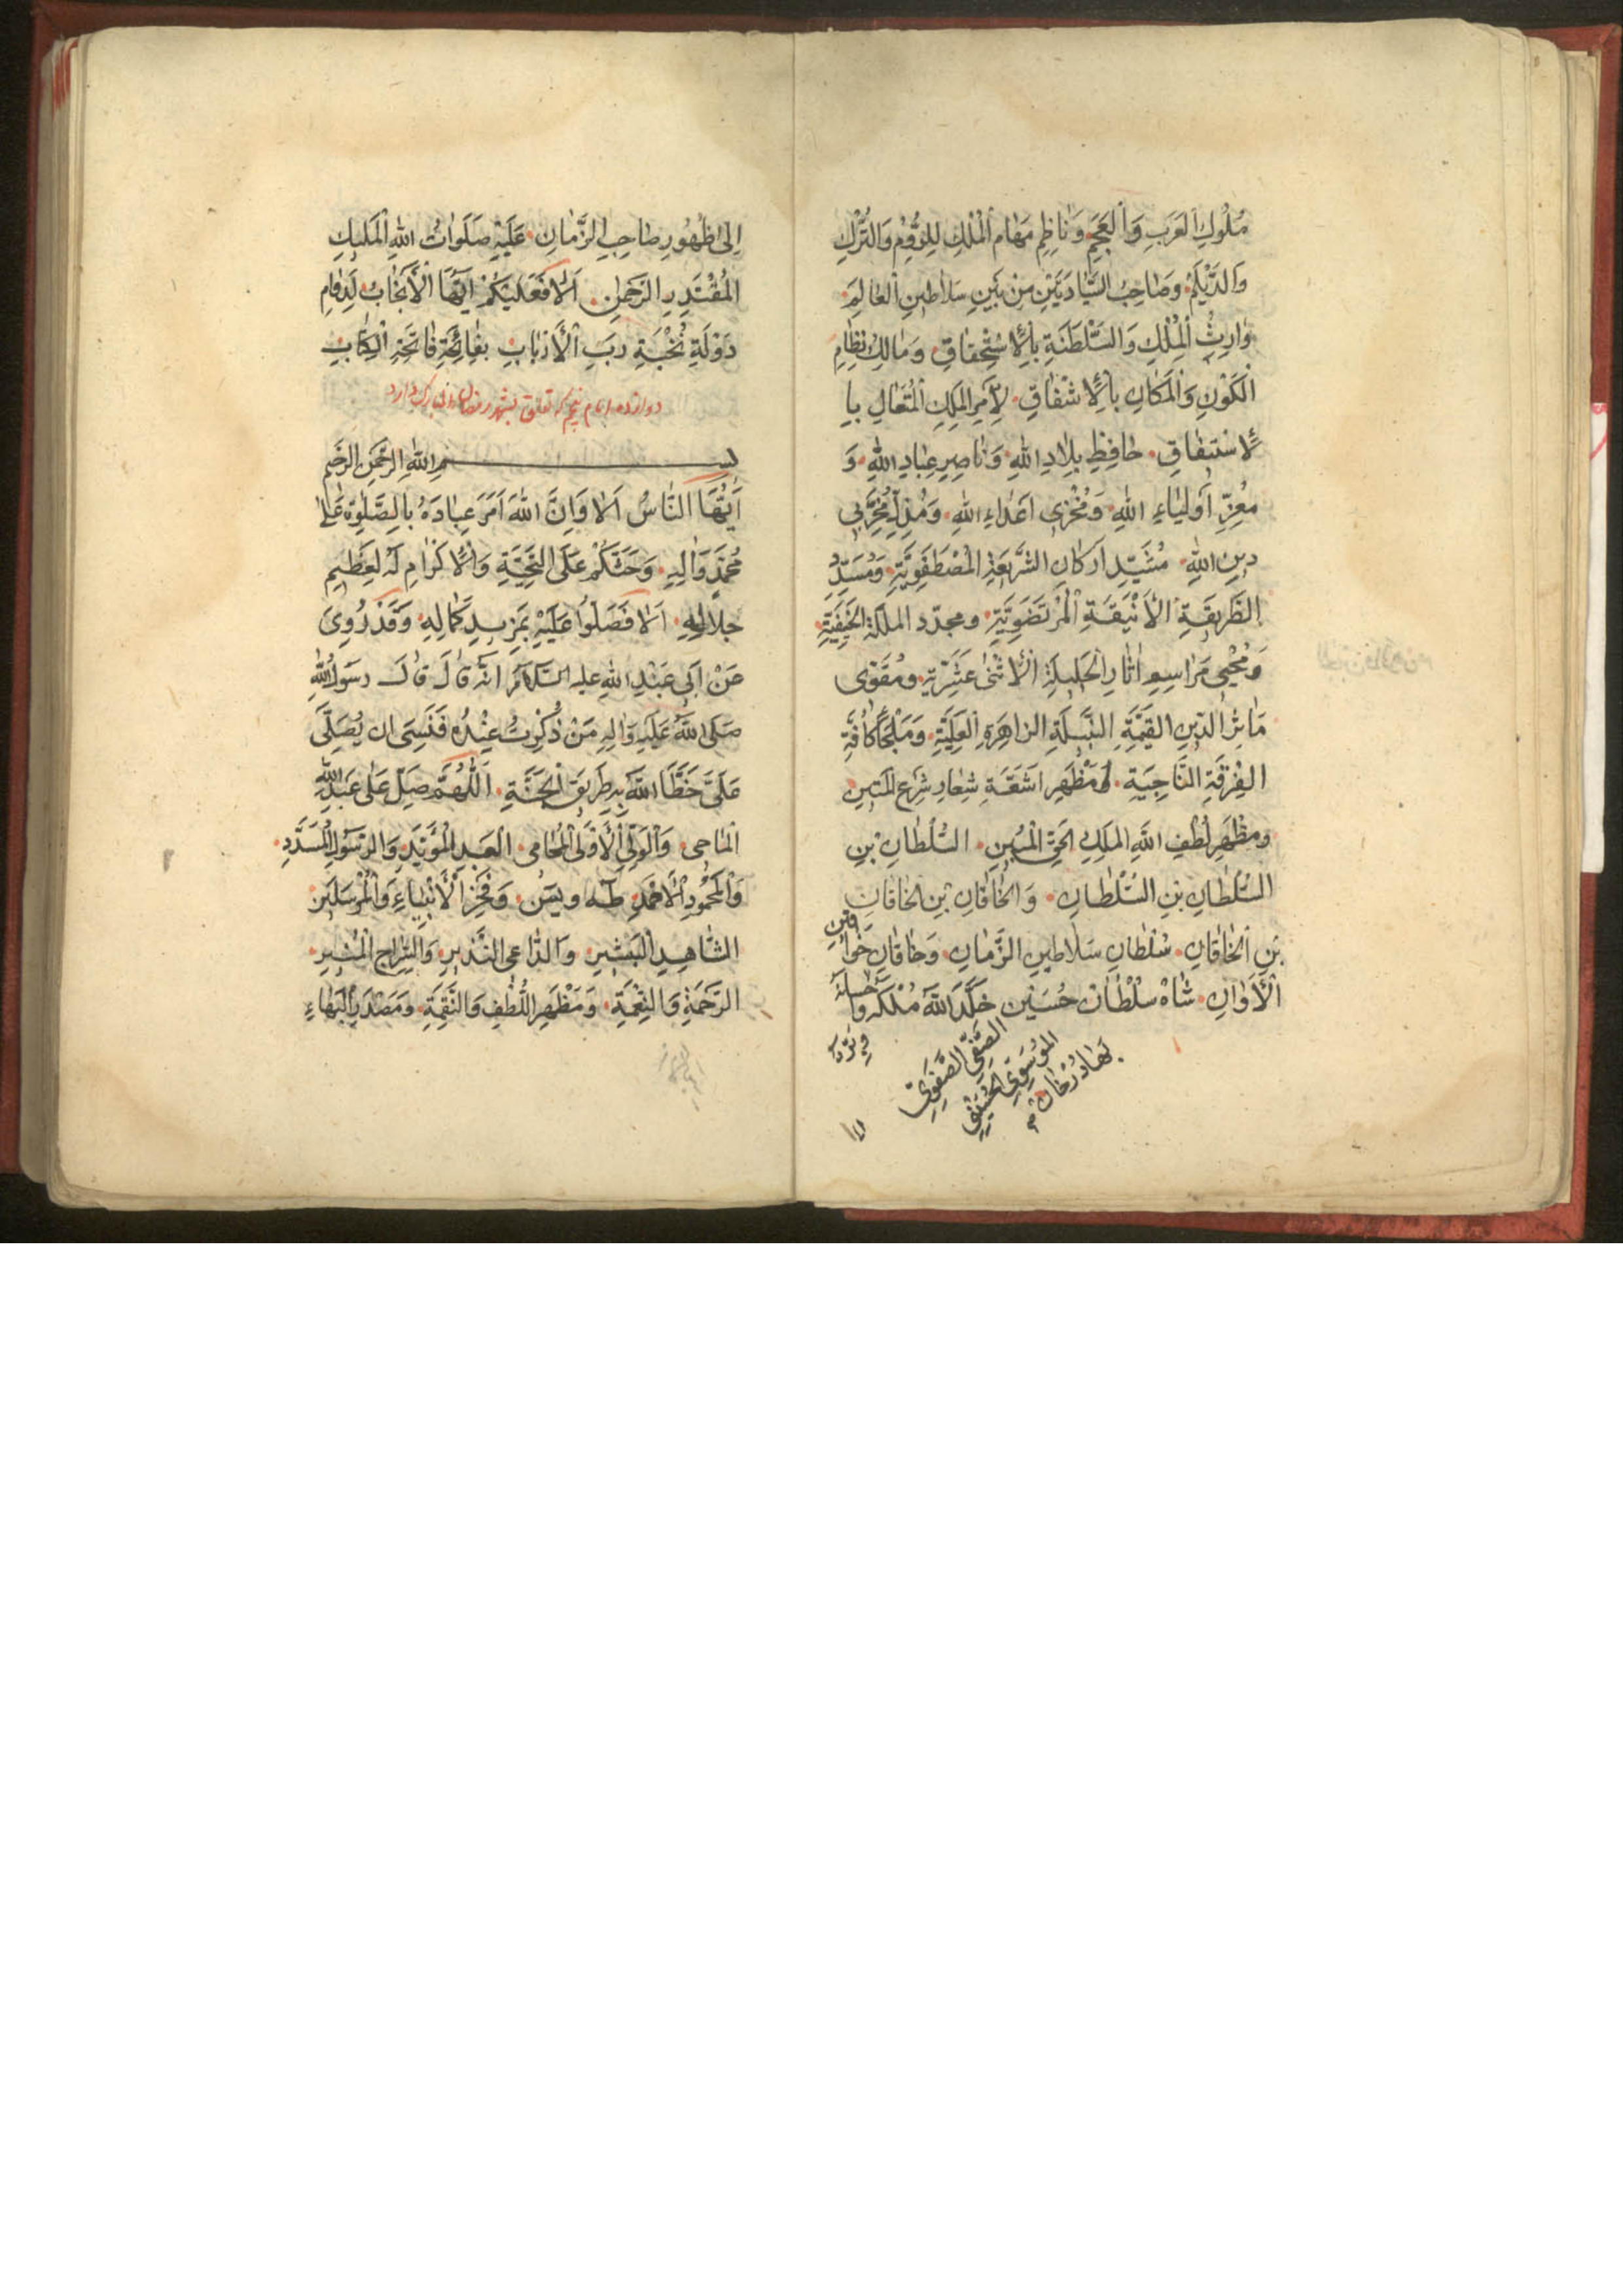 مُلُوكِ الْعَرَبِ وَالْعَجَمِ وَنَاظِمِ مَهَامِ الْمُلْكِ لِلرُّومِ وَالتُّرْكِ
وَالدَّيْلَمِ وَصَاحِبُ السِّيَادَتَيْنِ مِنْ بَيْنِ سَلَاطِينِ الْعَالَمِ
وَارِثِ الْمُلْكِ وَالسَّلْطَنَةِ بِالْاسْتِحْقَاقِ وَمَالِكِ نِظَامِ
الْكَوْنِ وَالْمَكَانِ بِالْاِشْفَاقِ لِأَمْرِ الْمَلِكِ الْمُتَعَالِ بِا
لْاسْتِيفَاقِ حَافِظِ بِلَادِ اللهِ وَنَاصِرِ عِبَادِ اللهِ وَ
مُعِزِّ اَوْلِيَاءِ اللهِ وَمُخْزِي اَعْدَاءِ اللهِ وَمُذِلِّ مُخَرِّبِي
دِينِ اللهِ مُشَيِّدِ اَرْكَانِ الشَّرِيعَةِ الْمُصْطَفَوِيَّةِ وَمُسَدِّدِ
الطَّرِيقَةِ الْأَنِيقَةِ الْمُرْتَضَوِيَّةِ ومجدّد الملّة الحَنِيفِيَّةِ
وَمُحْيِي مَرَاسِمِ اٰثَارِ الْجَلِيلَةِ الْاِثْنَى عَشَرِيَّةِ ومُقَوِّى
مَاٰثِرِ الدِّينِ الْقَيِّمَةِ النَّبِيلَةِ الزاهِرَةِ الْعَلِيَّةِ وَمَلْجَأِ كَافَّةِ
الْفِرْقَةِ النَّاجِيَةِ وَمَظْهَرِ اَشِعَّةِ شِعَارِ شَرْعِ الْمَتِينِ
ومظْهَرِ لُطْفِ اللهِ المَلِكِ الْحَقِّ الْمُبِينِ السُّلْطَانِ بْنِ
السُّلْطَانِ بْنِ السُّلْطَانِ وَالْخَاقَانِ بْنِ الْخَاقَانِ
بْنِ الْخَاقَانِ سُلْطَانِ سَلَاطِينِ الزَّمَانِ وَخَاقَانِ خَوَاقِينِ
الْأَوَانِ شَاهْ سُلْطَانْ حُسَيْنِ خَلَّدَ اللهُ مُلْكَهُ وَاِحْسَانَهُ
الصَّفِيِّ الصَّفَوِيِّ
الْمُوسَوِيِّ الْحُسَيْنِيِّ
بَهَادُرْخَانْ
اِلىٰ ظُهُورِ صَاحِبِ الزَّمَانِ عَلَيْهِ صَلَوَاتُ اللهِ الْمَلِيكِ
الْمُقْتَدِرِ الرَّحْمٰنِ اَلَا فَعَلَيْكُمْ اَيُّهَا الْأَنْجَابُ لِدَوَامِ
دَوْلَةِ نُخْبَةِ رَبِّ الْأَرْبَابِ بِفَائِحَةِ فَاتِحَةِ الْكِتَابِ
دوازده امام پنجم که تعلق بشهر رمضان المبارک دارد
بِسْمِ اللهِ الرَّحْمٰنِ الرَّحِيمِ
اَيُّهَا النَّاسُ اَلَا وَاِنَّ اللهَ اَمَرَ عِبَادَهُ بِالصَّلٰوةِ عَلىٰ
مُحَمَّدٍ وَاٰلِهِ وَحَثَّكُمْ عَلَى التَّحِيَّةِ وَالْاِكْرَامِ لَهُ لِعَظِيمِ
جَلَالِهِ اَلَا فَصَلُّوا عَلَيْهِ بِمَزِيدِ كَمَالِهِ وَقَدْ رُوِىَ
عَنْ اَبِي عَبْدِ اللهِ عليه السَّلَامُ اَنَّهُ قَالَ قَالَ رسَولُ اللهِ
صَلَّى اللهُ عَلَيْهِ وَاٰلِهِ مَنْ ذُكِرْتُ عِنْدَهُ فَنَسِىَ ان يُصَلِّىَ
عَلَىَّ خَطَّأَ اللهُ بِهِ طَرِيقَ الْجَنَّةِ اَللّٰهُمَّ صَلِّ عَلىٰ عَبْدِ اللهِ
الْمَاحِي وَالْوَلِيِّ الْأَوْلَى الْمُحَامِي الْعَبْدِ الْمُؤَيَّدِ وَالرَّسُولِ الْمُسَدَّدِ
وَالْمَحْمُودِ الْاَحْمَدِ طٰه ويٰسٓ وَفَخْرِ الْأَنْبِيَاءِ وَالْمُرْسَلِينَ
الشَّاهِدِ الْبَشِيرِ وَالدَّاعِي النَّذِيرِ وَالسِّرَاجِ الْمُنِيرِ
الرَّحْمَةِ وَالنِّعْمَةِ وَمَظْهَرِ اللُّطْفِ وَالنَّقِمَةِ وَمَصْدَرِ الْبَهَاءِ